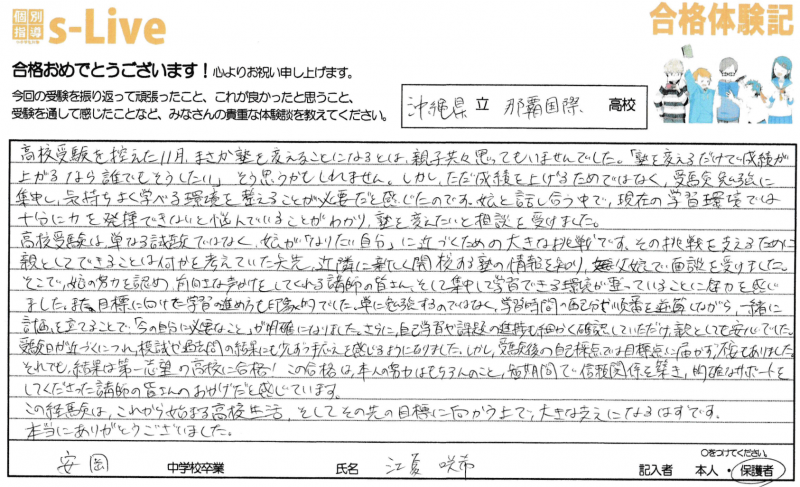 個別指導 s-Live
合格体験記
合格おめでとうございます！心よりお祝い申し上げます。
今回の受験を振り返って頑張ったこと、これが良かったと思うこと、
受験を通して感じたことなど、みなさんの貴重な体験談を教えてください。
沖縄県 立 那覇国際 高校
高校受験を控えた11月、まさか塾を変えることになるとは、親子共々思ってもいませんでした。「塾を変えるだけで成績が
上がるなら誰でもそうしたい」そう思うかもしれません。しかし、ただ成績を上げるためではなく、受験勉強に
集中し、気持ちよく学べる環境を整えることが必要だと感じたのです。娘と話し合う中で、現在の学習環境では
十分に力を発揮できないと悩んでいることがわかり、塾を変えたいと相談を受けました。
高校受験は、単なる試験ではなく、娘が「なりたい自分」に近づくための大きな挑戦です。その挑戦を支えるために
親としてできることは何かを考えていた矢先、近隣に新しく開校する塾の情報を知り、父娘で面談を受けました。
そこで、娘の努力を認め、前向きな声かけをしてくれる講師の皆さん、そして集中して学習できる環境が整っていることに魅力を感じ
ました。また、目標に向けた学習の進め方も印象的でした。単に勉強するのではなく、学習時間の配分や順番を意識しながら一緒に
計画を立てることで、「今の自分に必要なこと」が明確になりました。さらに、自己学習や課題の進捗も細かく確認していただけ、親としても安心でした。
受験日が近づくにつれ、模試や過去問の結果にも少しずつ手応えを感じるようになりました。しかし、受験後の自己採点では目標点に届かず不安もありました。
それでも、結果は第一志望の高校に合格！この合格は、本人の努力はもちろんのこと、短期間で信頼関係を築き、的確なサポートを
してくださった講師の皆さんのおかげだと感じています。
この経験は、これから始まる高校生活、そしてその先の目標に向かう上で、大きな支えになるはずです。
本当にありがとうございました。
○をつけてください。
安岡 中学校卒業 氏名 江夏 咲希 記入者 本人・保護者